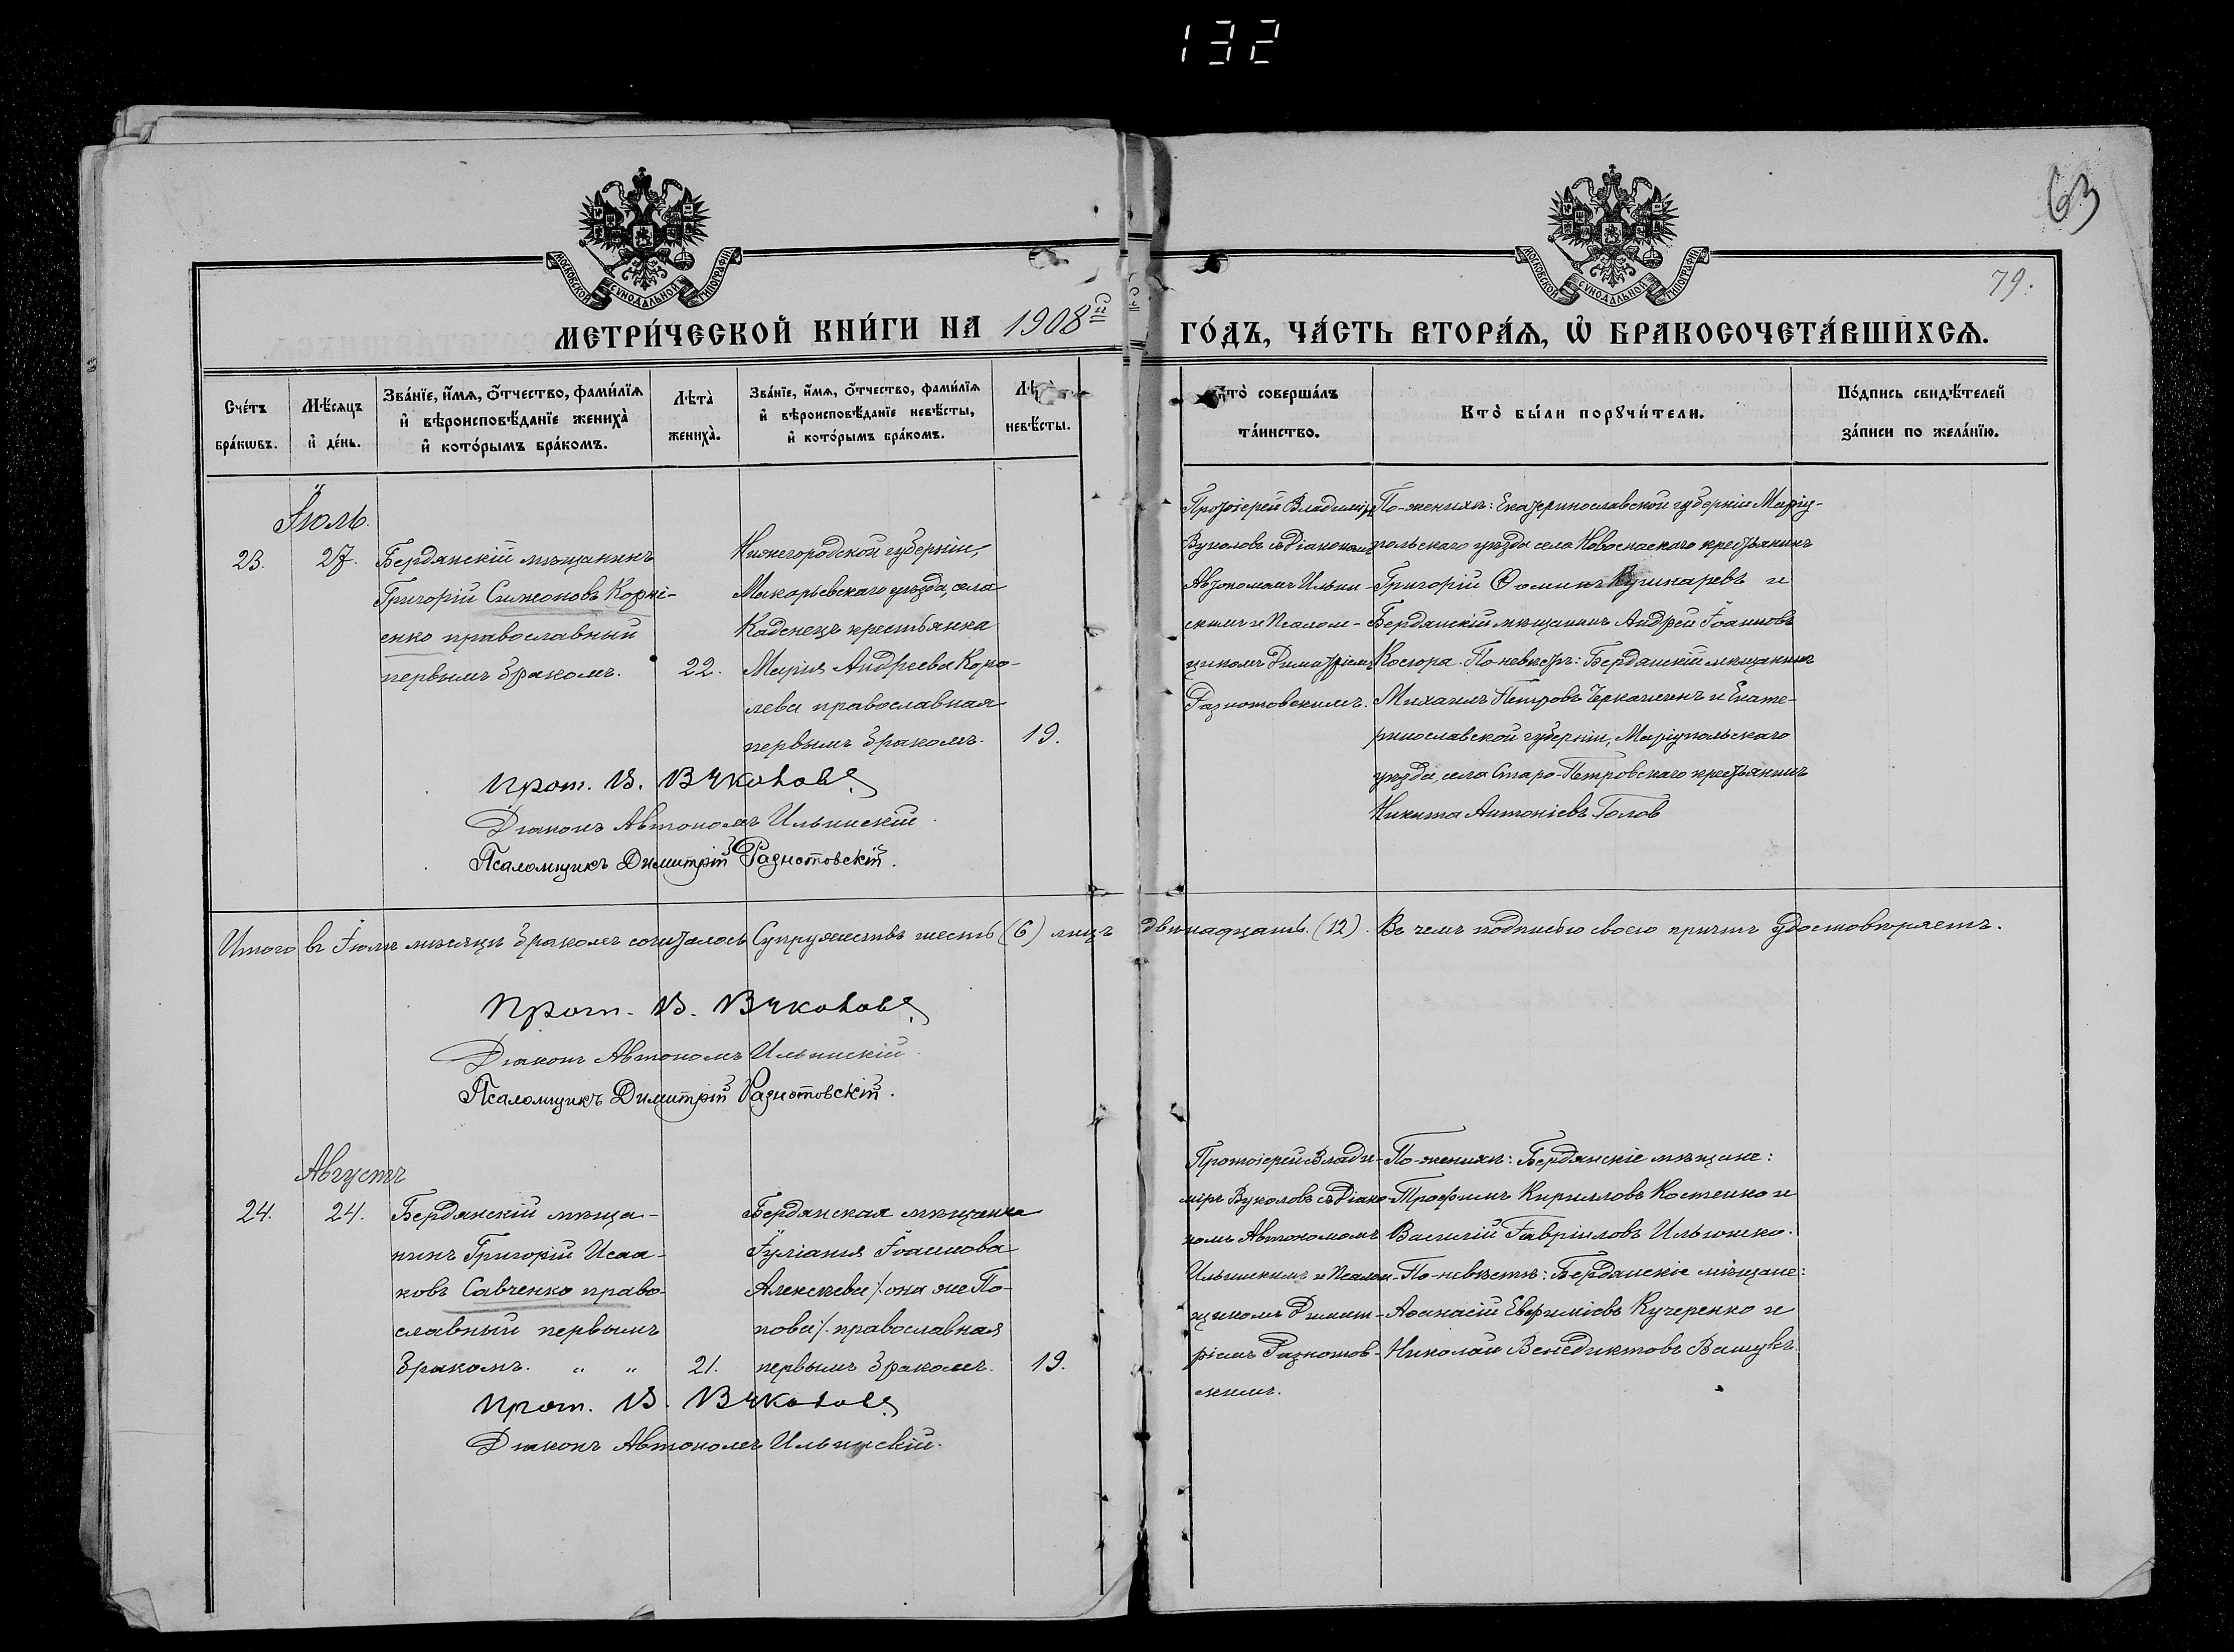 132
63
79.
МОСКОВСКОЙ СѴНОДАЛЬНОЙ ТИПОГРАФІИ
МОСКОВСКОЙ СѴНОДАЛЬНОЙ ТИПОГРАФІИ
МЕТРИ́ЧЕСКОЙ КНИ́ГИ НА 1908й ГО́ДЪ, ЧА́СТЬ ВТОРА́Ѧ, Ѽ БРАКОСОЧЕТА́ВШИХСѦ.
Сче́тъ
бра́кѡвъ.
Мѣ́сѧцъ
и҆ де́нь.
Зва́нїе, и҆́мѧ, ѻ҆́тчество, фами́лїѧ
и҆ вѣроисповѣ́данїе жениха̀
и҆ кото́рымъ бра́комъ.
Лѣта̀
жениха̀.
Зва́нїе, и҆́мѧ, ѻ҆́тчество, фами́лїѧ
и҆ вѣроисповѣ́данїе невѣ́сты,
и҆ кото́рымъ бра́комъ.
невѣ́сты.
Кто̀ соверша́лъ
та́инство.
Кто̀ бы́ли порꙋчи́тели.
По́дпись свидѣ́телей
за́писи по жела́нїю.
Іюль.
23.
27.
Бердянскій мѣщанинъ
Григорій Симеоновъ Корні-
енко православный
первымъ бракомъ.
22.
Нижегородской губерніи,
Макарьевскаго уѣзда, села
Каденецъ крестьянка
Марія Андреева Коро-
лева православная
первымъ бракомъ.
19.
Протоіерей Владиміръ
Вуколовъ съ Діакономъ
Автономомъ Ильин-
скимъ и Псалом-
щикомъ Димитріемъ
Разнотовскимъ.
По-женихѣ: Екатеринославской губерніи Маріу-
польскаго уѣзда села Новоспаскаго крестьянинъ
Григорій Ѳоминъ Кушнаревъ и
Бердянскій мѣщанинъ Андрей Іоанновъ
Косюра. По-невѣстѣ: Бердянскій мѣщанинъ
Михаилъ Петровъ Черкашинъ и Екате-
ринославской губерніи, Маріупольскаго
уѣзда, села Старо-Петровскаго крестьянинъ
Никита Антоніевъ Голов
Прот. В. Вуколовъ
Діаконъ Автономъ Ильинскій.
Псаломщикъ Димитрій Разнотовскій.
Итого въ Іюлѣ мѣсяцѣ бракомъ сочеталось Супружествъ шесть (6) лицъ двѣнадцать. (12). Въ чемъ подписью своею причтъ удостовѣряетъ.
Прот. В. Вуколовъ
Діаконъ Автономъ Ильинскій.
Псаломщикъ Димитрій Разнотовскій.
Августъ
24.
24.
Бердянскій мѣща-
нинъ Григорій Исаа-
ковъ Савченко право-
славный первымъ
бракомъ. " "
21.
Бердянская мѣщанка
Іуліанія Іоаннова
Алексѣева /: она же По-
пова /. православная
первымъ бракомъ.
19.
Протоіерей Влади-
міръ Вуколовъ съ Діако-
номъ Автономомъ
Ильинскимъ и Псалом-
щикомъ Димит-
ріемъ Разнотов-
скимъ.
По-женихѣ: Бердянскіе мѣщане:
Трофимъ Кирилловъ Костенко и
Василій Гавріиловъ Ильюшко.
По-невѣстѣ: Бердянскіе мѣщане:
Аѳанасій Евфиміевъ Кучеренко и
Николай Венедиктовъ Вашукъ.
Прот. В. Вуколовъ
Діаконъ Автономъ Ильинскій.